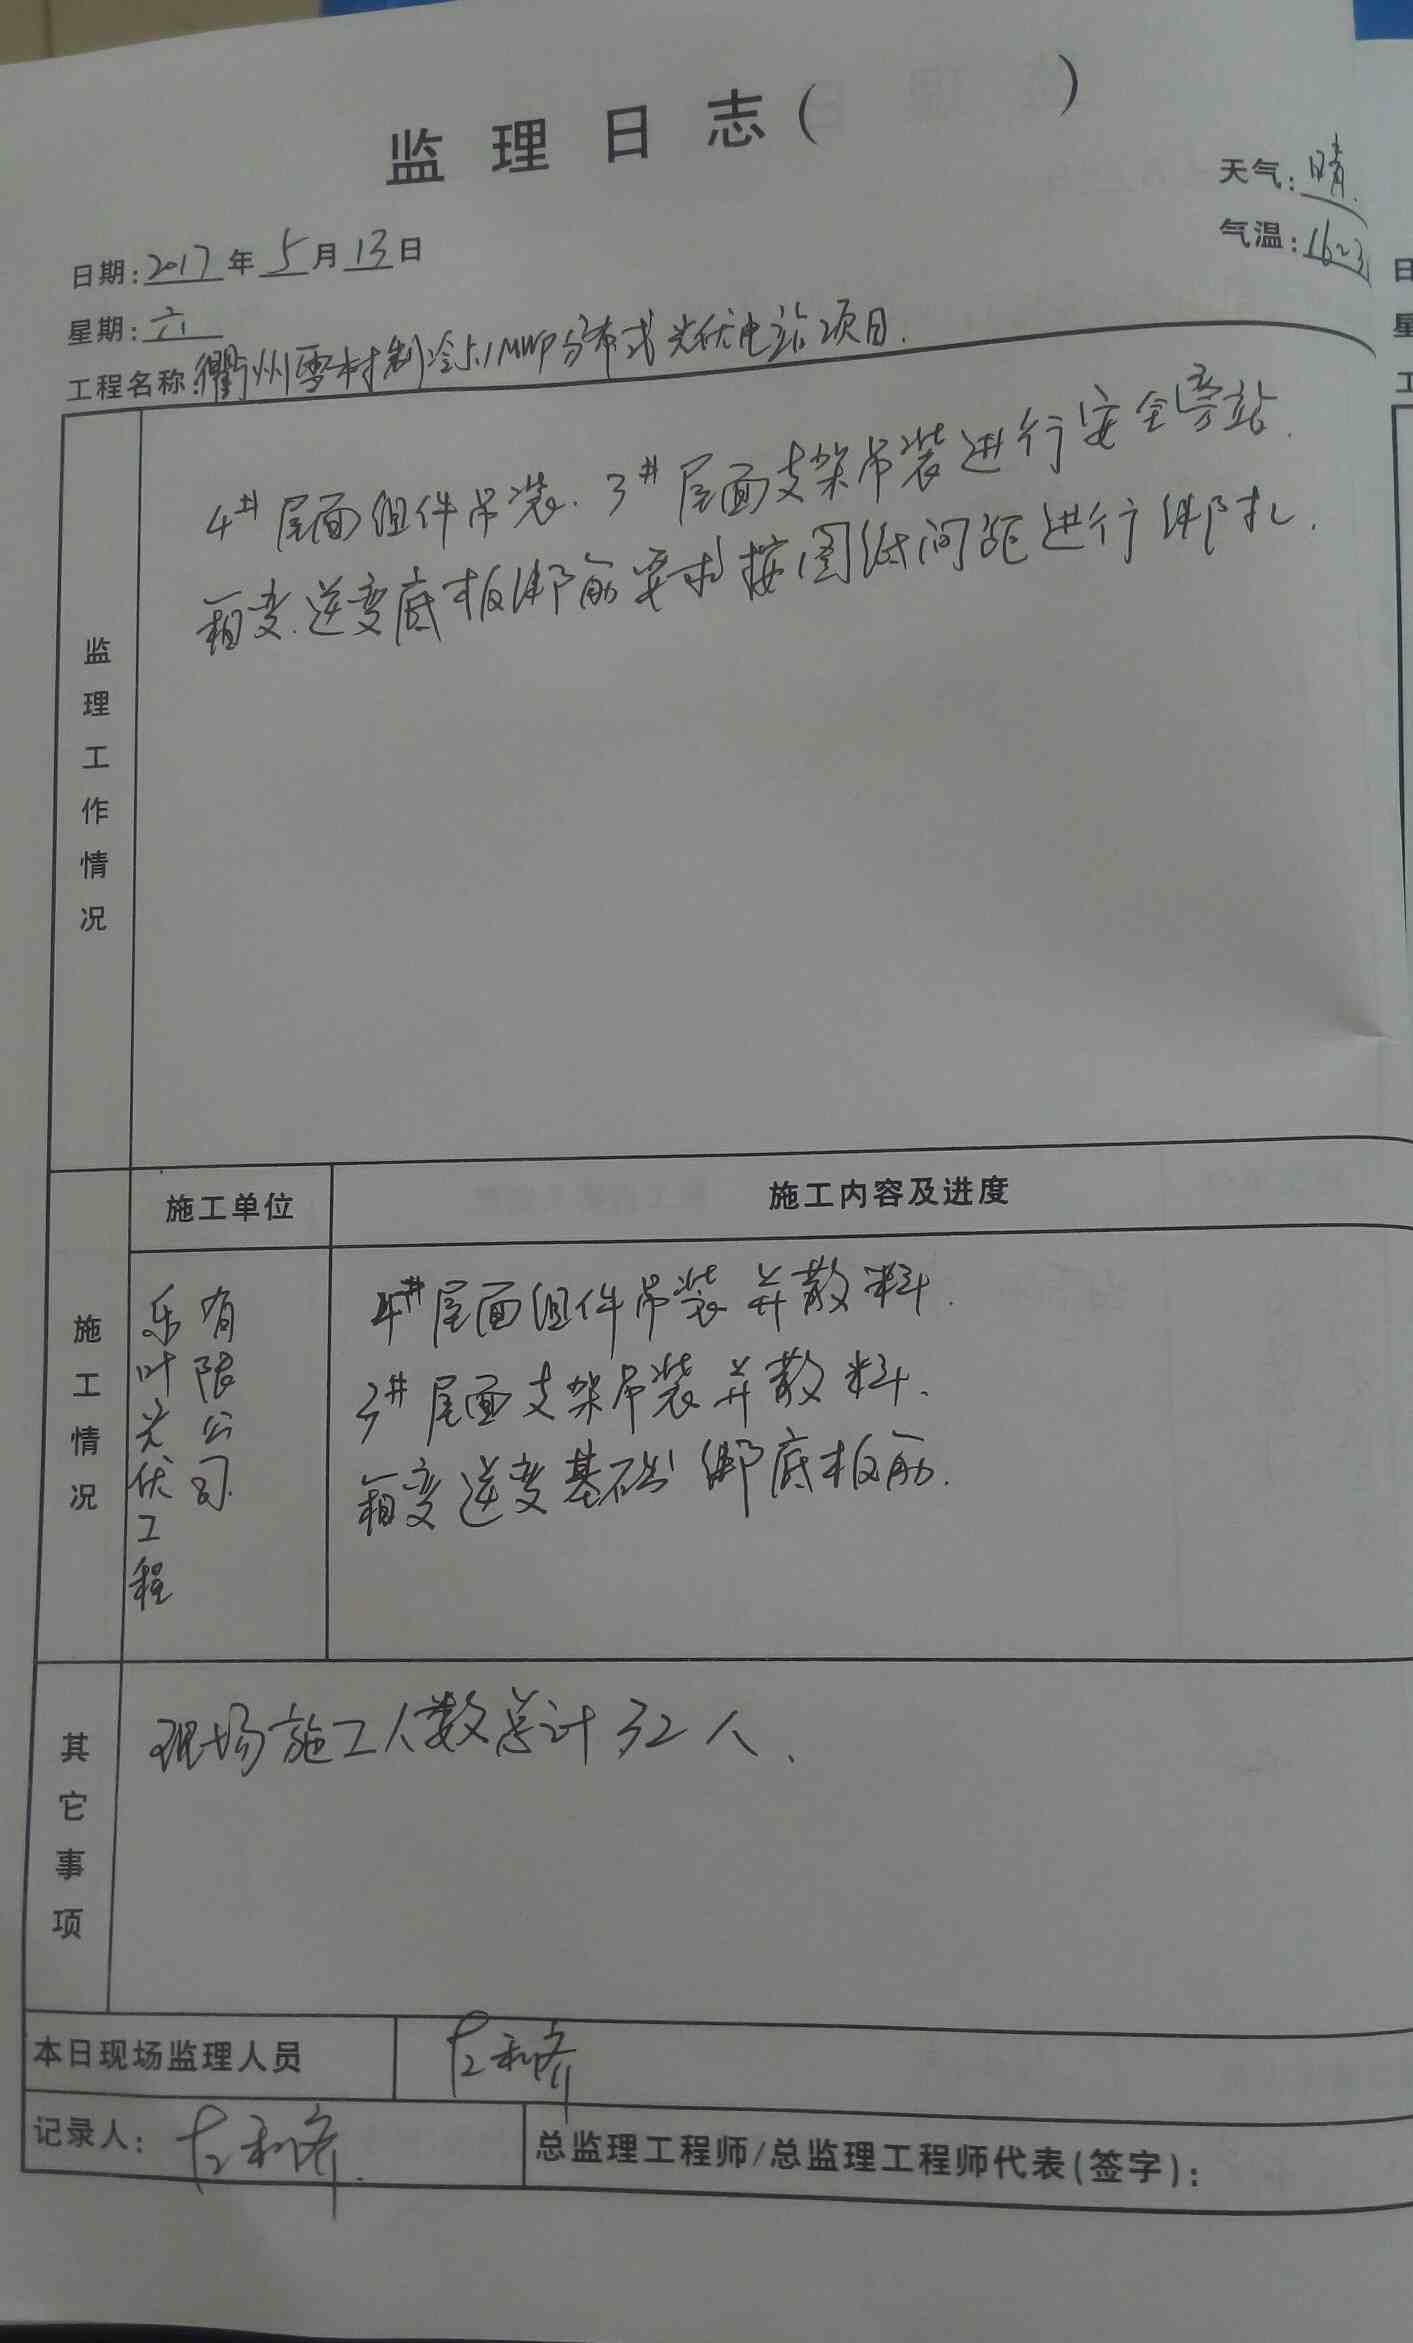 监理日志( )
天气:晴
气温:16~23
日期:2017年5月13日
星期:六
工程名称:衢州雪村制冷5.1MWP分布式光伏电站项目.
监理工作情况
4#屋面组件吊装.3#屋面支架吊装进行安全旁站.
箱变.逆变底板绑筋要求按图纸间距进行绑扎.
施工单位
施工内容及进度
施工情况
乐叶光伏工程
有限公司.
4#屋面组件吊装并散料.
3#屋面支架吊装并散料.
箱变逆变基础绑底板筋.
其它事项
现场施工人数总计32人、
本日现场监理人员
记录人:
总监理工程师/总监理工程师代表(签字):